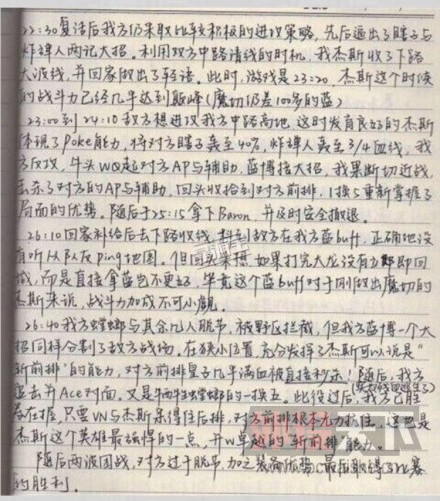 22:30复活后我方仍采取比较积极的进攻策略,先后逼出了瞎子与
炸弹人两记大招。利用双方中路清线的时机,我杰斯收了下路
大波线,并回家做出了轻语。此时,游戏是23:20,杰斯这个时候
的战斗力已经几乎达到巅峰(魔切仍差100多的蓝)
23:00到24:10敌方想进攻我方中路高地,这时发育良好的杰斯
体现了Poke能力,将对方瞎子轰至40%,炸弹人轰至3/4血线,我
方反攻,牛头WQ起对方AP与辅助,蓝博接大招,我果断切近战,
击杀了对方的AP与辅助,回头收拾到对方前排,1换5重新掌握了
局面的优势。随后于25:15拿下Baron,并及时安全撤退。
26:10回家补给后去下路收线,料到敌方在我方蓝buff,正确地没
有听从队友ping地图。但回头来想,如果打完大龙没有立即回
城,而是直接拿蓝岂不更好,毕竟这个蓝buff对于刚做出魔切的
杰斯来说,战斗力加成不可小觑。
26:40我方螳螂与其余几人脱节,被野区拦截,但我方蓝博一个大
招同样分割了敌方战场。在狭小位置,充分发挥了杰斯可以说是"
斩前排"的能力,对方前排皇子几乎满血被直接秒杀!随后,我方
追击并Ace对面。又是牛头与螳螂的一换五。此役过后,我方已胜
券在握,只要VN与杰斯杀得住后排,对方前排根本无力抗住,这也是
杰斯这个英雄最强悍的一点,并W卓越的"斩前排"能力。
随后两波团战,对方过于脱节,加之装备优势,最后取得了比赛
的胜利。